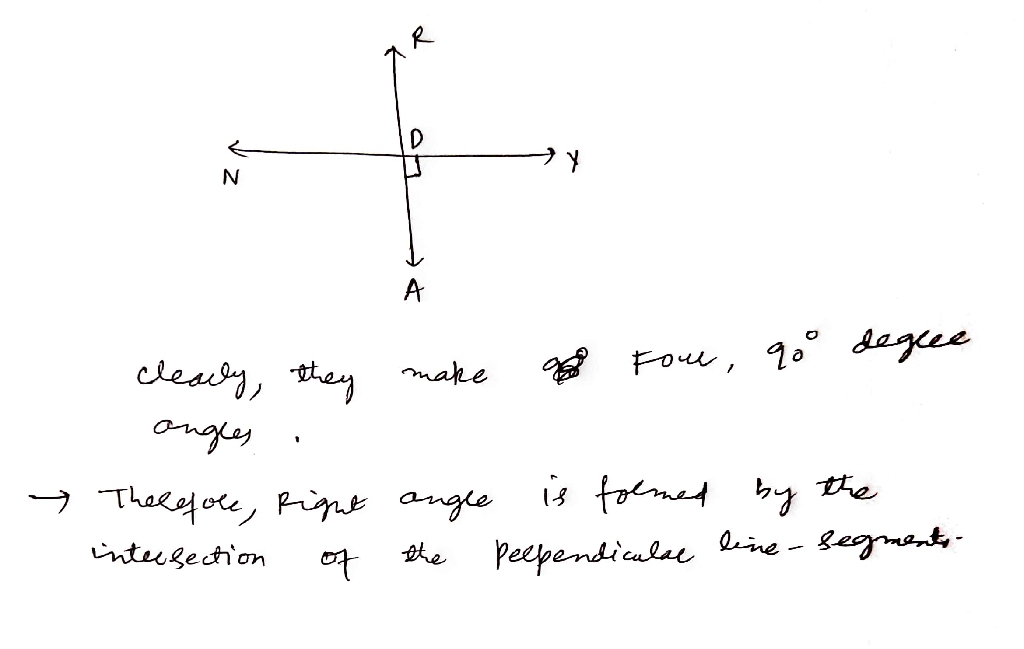 R
D
Y
N
A
clearly, they make Four, 90° degree
angles.
→ Therefore, Right angle is formed by the
intersection of the perpendicular line-segments.